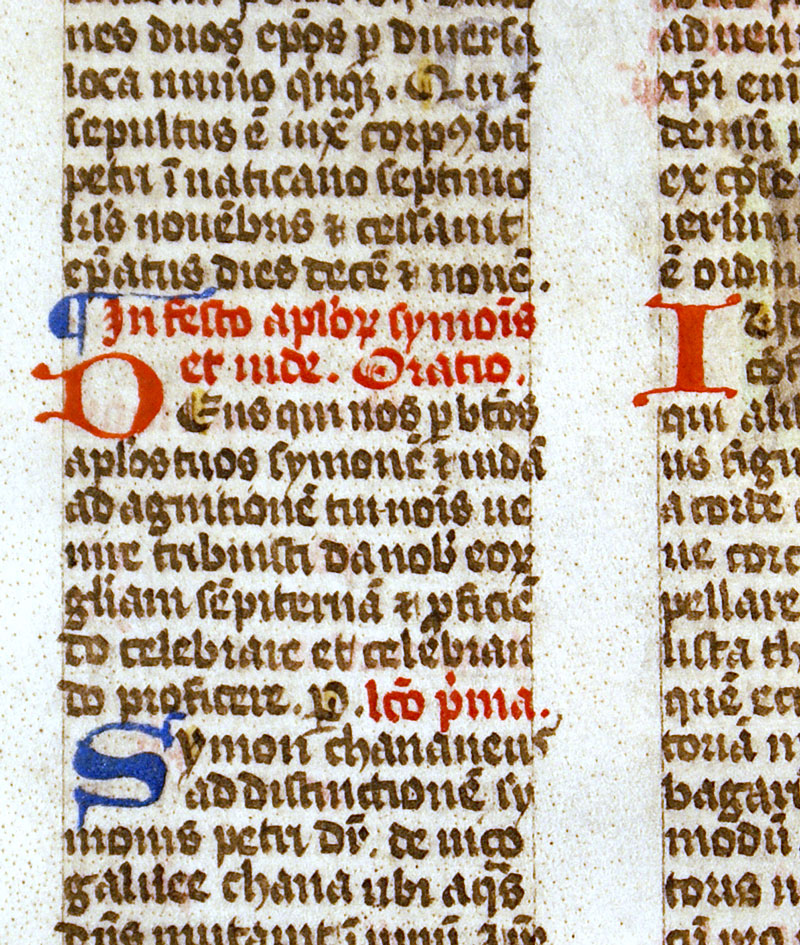 nes duos ep̄os ꝑ diuersa
loca nūio q̇nqꝫ. Qui ⁊
sepultus ē iuxͣ corpꝰ bti
petri ī uaticano septimo
kl̄s nouēbris ⁊ cessauit
ep̄atus dies decē ⁊ nouē.
¶ In festo apl̄oꝝ symoīs
et iude. Oratio.
DEus qui nos ꝑ btōs
apl̄os tuos symonē ⁊ iudā
ad agnitionē tui noīs ue
nire tribuisti da nob̄ eoꝝ
gl̄iam sēpiternā ⁊ ꝓficiē
do celebrare et celebran
do proficere. P̱. lc̄o p̄ma.
Symon chananeus
ad distinctionē sy
monis petri dr̄. de uico
galilee chana ubi aqͣs
dn̄s mutauit ī uinū
ad ueni
xp̄i eni
demū
ex cōse
ierlim
ē ordin
I
qui ali
us figu
a corde
ue corc
pellare
lista th
quē ecc
toriā
bagari
modū
toris